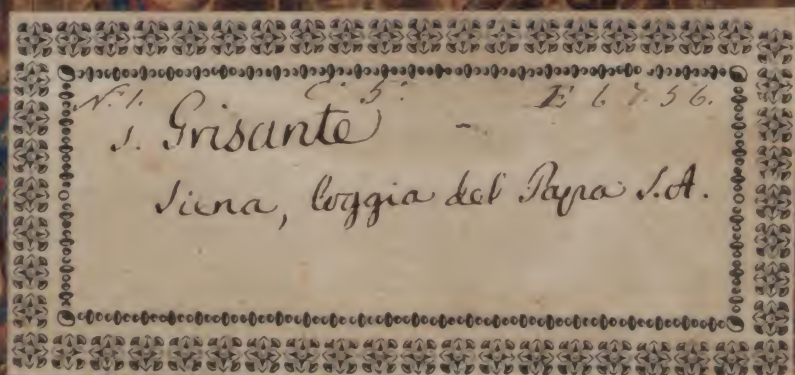 N.º 1. C. 5. E 6 7. 56.
S. Grisante
Siena, loggia del Papa S.A.